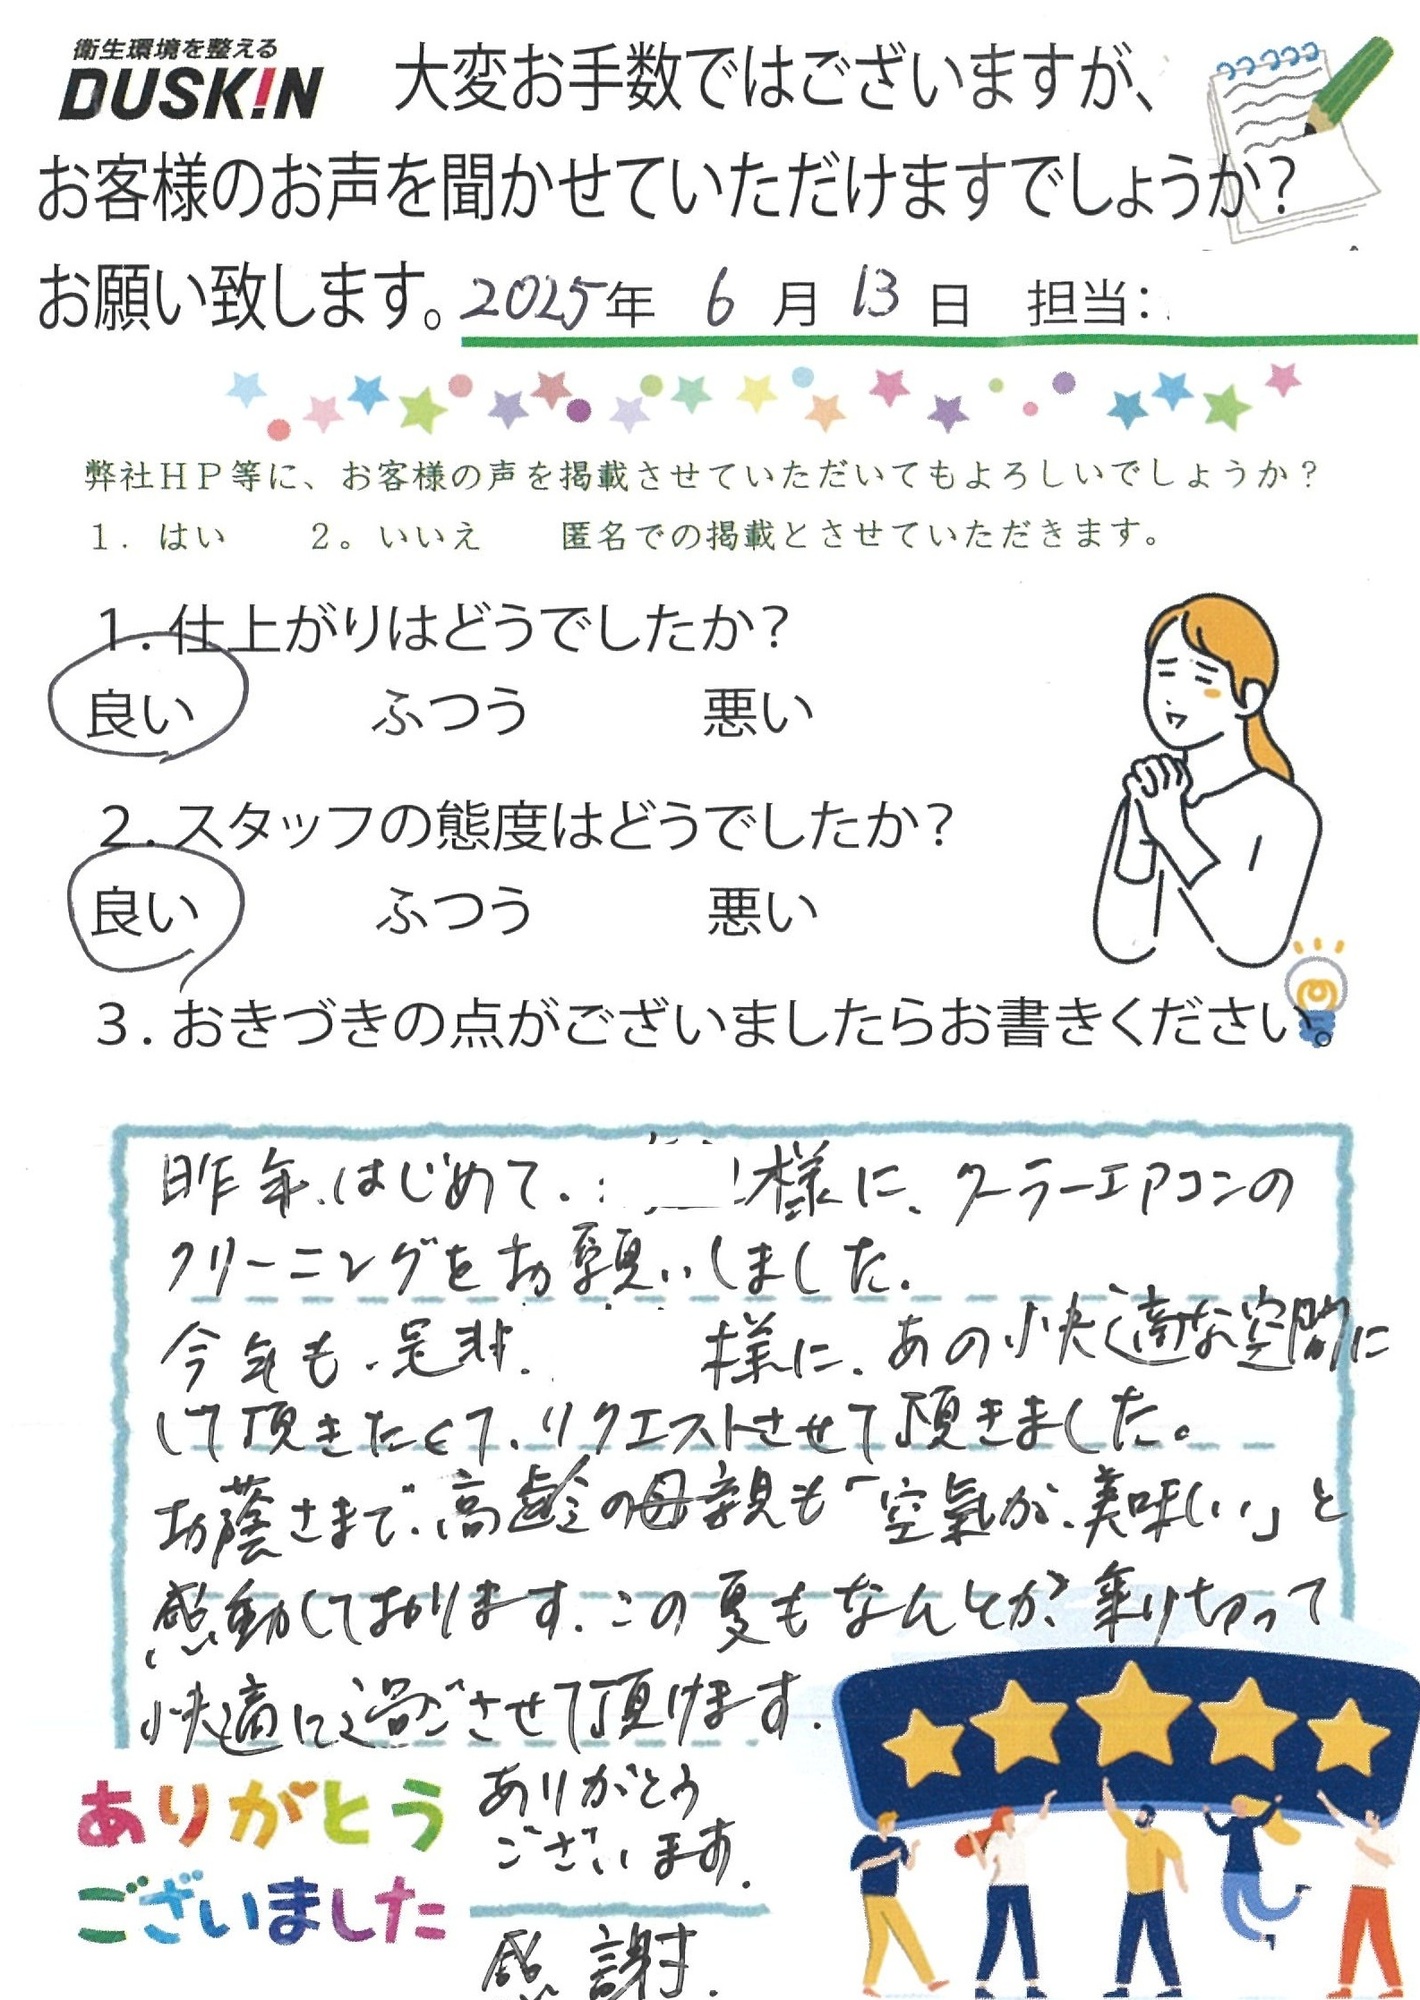 衛生環境を整える
DUSKIN
大変お手数ではございますが、
お客様のお声を聞かせていただけますでしょうか？
お願い致します。2025年 6月13日 担当：
弊社HP等に、お客様の声を掲載させていただいてもよろしいでしょうか？
1. はい 2。いいえ 匿名での掲載とさせていただきます。
1. 仕上がりはどうでしたか？
良い ふつう 悪い
2. スタッフの態度はどうでしたか？
良い ふつう 悪い
3. おきづきの点がございましたらお書きください。
昨年、はじめて、様に、クーラーエアコンの
クリーニングをお願いしました。
今年も、是非、様に、あの快適な空間に
して頂きたくて、リクエストさせて頂きました。
お蔭さまで、高齢の母親も「空氣が、美味しい」と
感動しております。この夏もなんとか乗り切って
快適に過ごさせて頂けます。
ありがとう
ございます。
感謝.
ありがとう
ございました